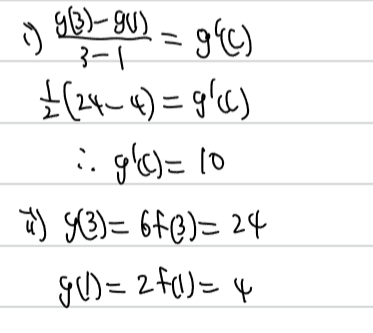 i) \frac{g(3)-g(1)}{3-1} = g'(c)
\frac{1}{2}(24-4) = g'(c)
∴ g'(c) = 10
ii) g(3) = 6f(3) = 24
g(1) = 2f(1) = 4